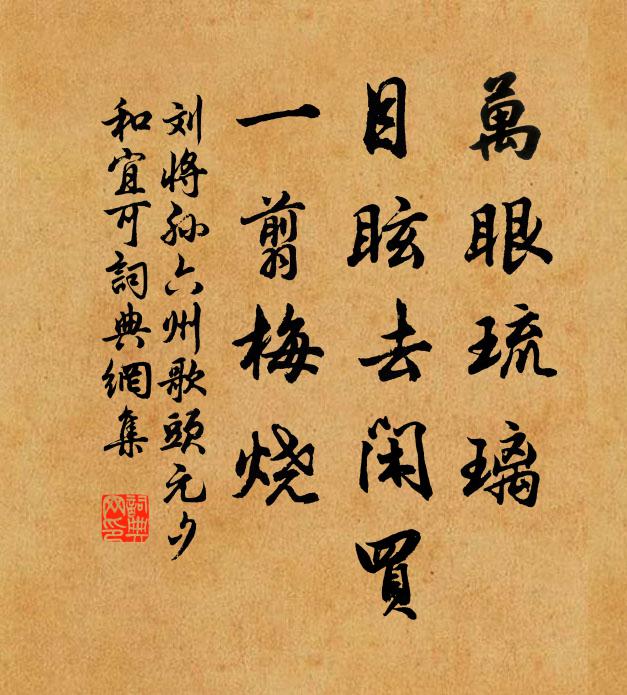 萬眼琉璃
目眩去閑買
一翦梅烧
刘将孙六州歌頭元夕
和宜可詞典網集
詞典网印